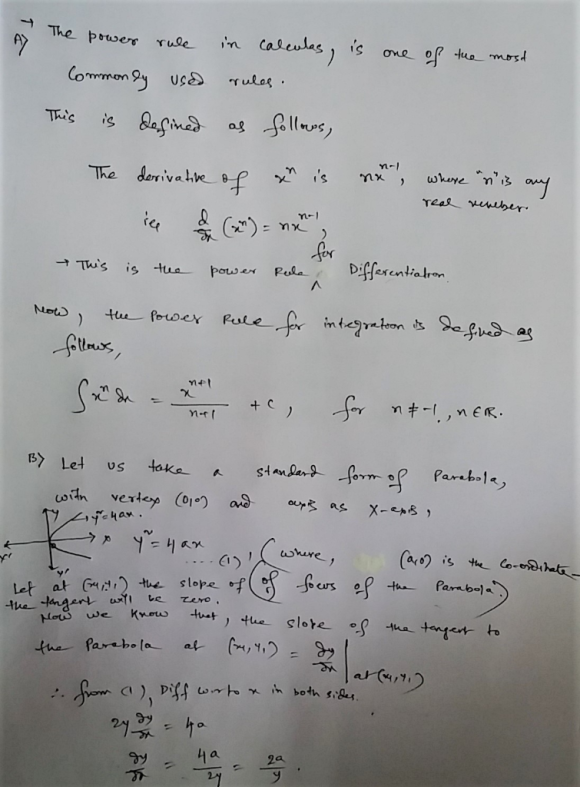 A) → The power rule in calculas, is one of the most
commonly used rules.
This is defined as follows,
The derivative of xⁿ is nxⁿ⁻¹, where "n" is any
real number.
ie, d/dx (xⁿ) = nxⁿ⁻¹,
→ This is the power Rule for Differentiation.
Now, the Power Rule for integration is defined as
follows,
∫ xⁿ dx = xⁿ⁺¹/n+1 + c, for n ≠ -1, n ∈ R.
B) Let us take a standard form of Parabola,
with vertex (0,0) and axis as X-axis,
y² = 4ax.
y
x
x'
y'
y² = 4ax ....(1), (where, (a,0) is the co-ordinate
of focus of the Parabola.)
Let at (x₁, y₁) the slope of
the tangent will be zero.
Now we know that, the slope of the tangent to
the Parabola at (x₁, y₁) = dy/dx | at (x₁, y₁)
∴ from (1), Diff w.r.to x in both sides.
2y dy/dx = 4a
dy/dx = 4a/2y = 2a/y.